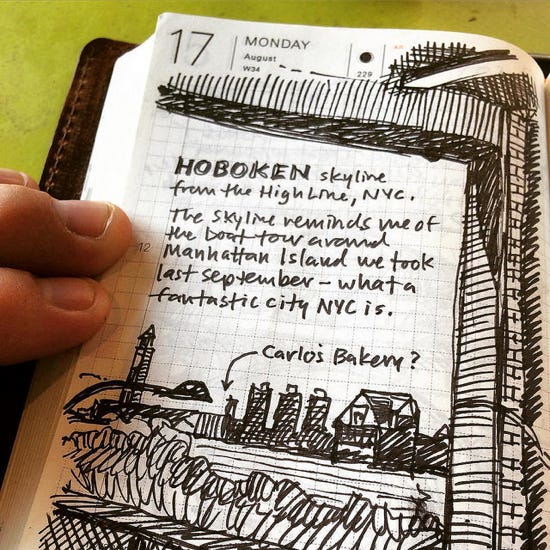 17
MONDAY
August
W34
229
HOBOKEN skyline
from the High Line, NYC.
The skyline reminds me of
the boat tour around
Manhattan Island we took
last september – what a
fantastic city NYC is.
12
Carlo's Bakery?